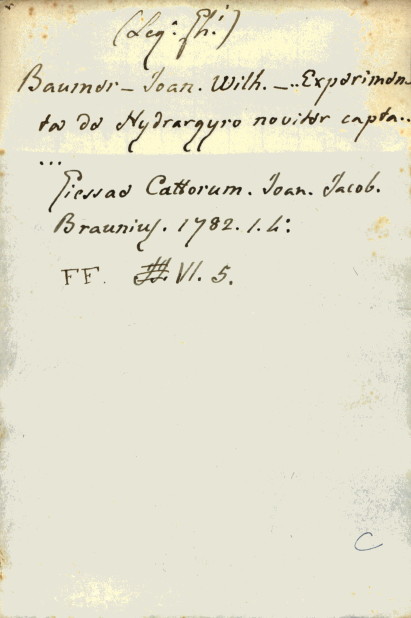 (Leg: Gh:)
Baumer - Joan. Wilh. - .. Experimen-
ta de Hydrargyro noviter capta..
...
Giessae Cattorum. Joan. Jacob.
Braunius. 1782. 1. 4:
FF. VI. 5.
C